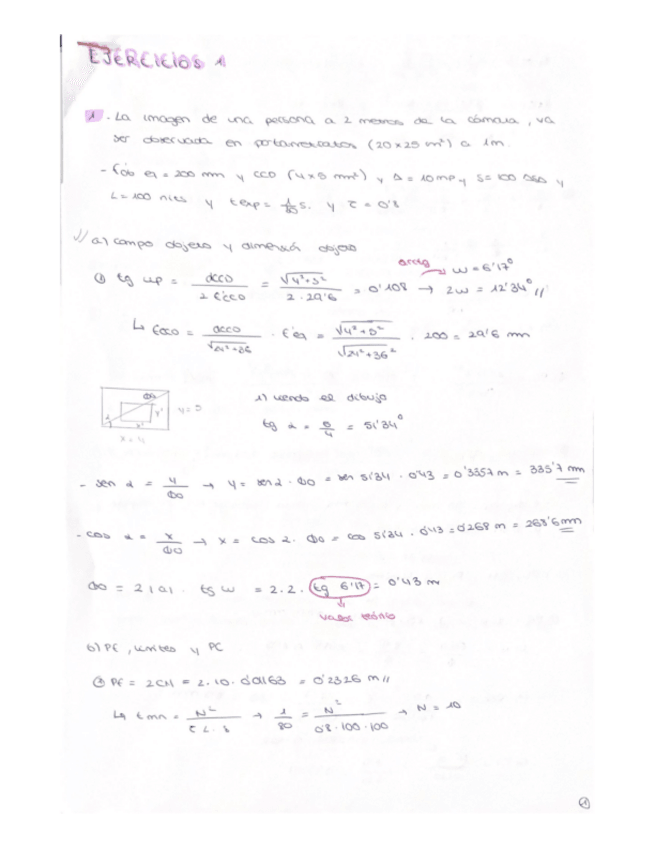 EJERCICIOS 1
1.- La imagen de una persona a 2 metros de la cámara, va
ser observada en portarretratos (20x25 cm²) a 1m.
L=100 nits y texp= 1/80 s. y τ = 0'8
a) campo objeto y dimensión objeto
tg wp = dccd / 2 f'ccd = √4²+5² / 2·29'6 = 0'108 → 2w = 12'34° //
arctg
w = 6'17°
↳ fccd = dccd / √24²+36 · f'eq = √4²+5² / √24²+36² · 200 = 29'6 mm
1) viendo el dibujo
y = 5
y'
x'
x = 4
tg α = 5/4 = 51'34°
- sen α = y/ϕo → y = sen α · ϕo = sen 51'34 · 0'43 = 0'3357 m = 335'7 mm
- cos α = x/ϕo → x = cos α · ϕo = cos 51'34 · 0'43 = 0'268 m = 268'6 mm
ϕo = 2 |a| · tg w = 2·2· tg 6'17 = 0'43 m
valor teórico
b) PE, límites y PC
PE = 2CN = 2·10·0'01163 = 0'2326 m //
↳ tmn = N² / τ L · s → 1/80 = N² / 0'8·100·100 → N = 10
1